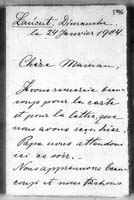 546
Lancut, Dimanche
le 24 Janvier 1904.
Chère Maman,
Je vous remercie beau-
coup pour la carte
et pour la lettre que
nous avons reçu hier.
Papa nous attendons
ici ce soir.
Nous apprenons beau-
coup et nous tâchons